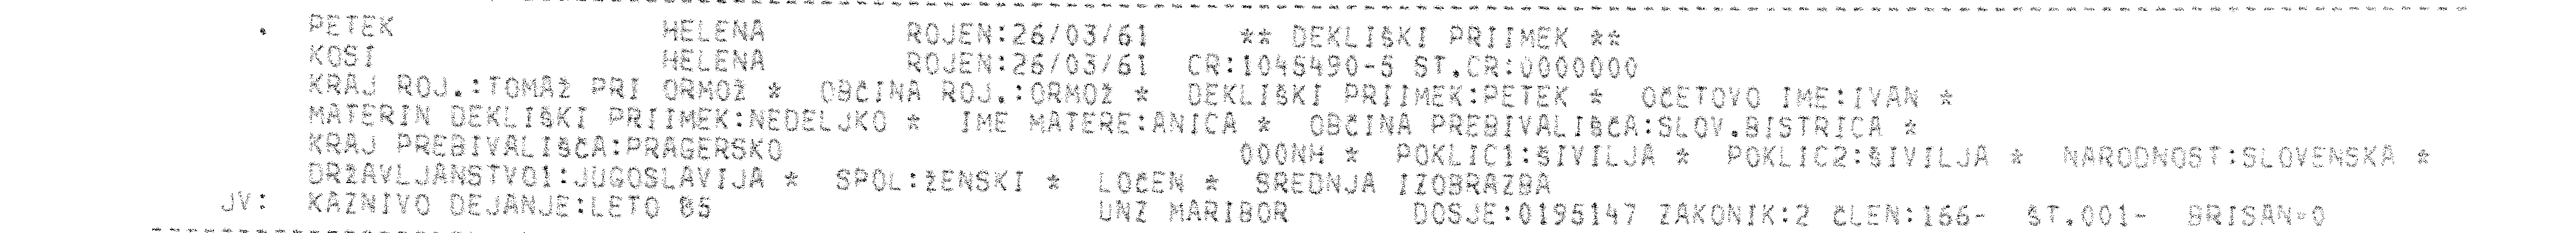 PETEK HELENA ROJEN:26/03/61 ** DEKLIŠKI PRIIMEK **
KOSI HELENA ROJEN:26/03/61 CR:1045490-5 ST.CR:0000000
KRAJ ROJ.:TOMAŽ PRI ORMOŽ * OBČINA ROJ.:ORMOŽ * DEKLIŠKI PRIIMEK:PETEK * OČETOVO IME:IVAN *
MATERIN DEKLIŠKI PRIIMEK:NEDELJKO * IME MATERE:ANICA * OBČINA PREBIVALIŠČA:SLOV.BISTRICA *
KRAJ PREBIVALIŠČA:PRAGERSKO 000NH * POKLIC1:ŠIVILJA * POKLIC2:ŠIVILJA * NARODNOST:SLOVENSKA *
DRŽAVLJANSTVO1:JUGOSLAVIJA * SPOL:ŽENSKI * LOČEN * SREDNJA IZOBRAZBA
JV: KAZNIVO DEJANJE:LETO 85 UNZ MARIBOR DOSJE:0195147 ZAKONIK:2 ČLEN:166- ŠT.001- BRISAN=0